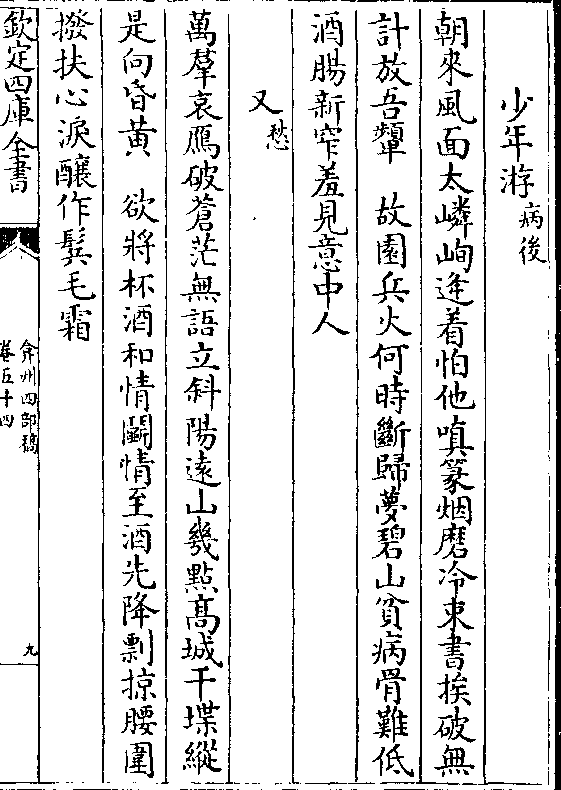 少年游病後
朝來風面太嶙峋逄着怕他嗔篆烟磨冷束書挨破無
計放吾顰　故園兵火何時斷歸夢碧山貧病骨難低
酒腸新窄羞見意中人
又愁
萬羣哀鴈破蒼茫無語立斜陽遠山幾點高城千堞縱
是向昏黄　欲將杯酒和情鬬情至酒先降剽掠腰圍
撥扶心淚釀作鬂毛霜
欽定四庫全書
弇州四部稿
卷五十四
九